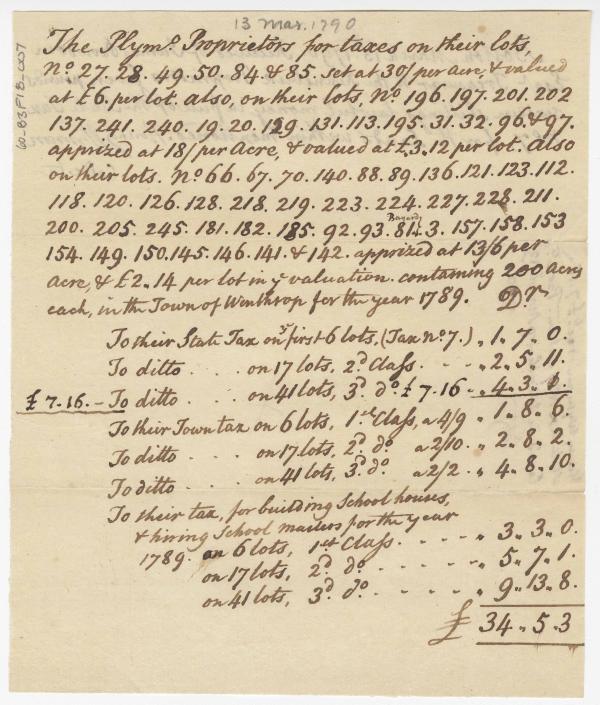 13 Mar. 1790
60-83F1B-007
The Plymo. Proprietors for taxes on their lots,
No 27. 28. 49. 50. 84. & 85. set at 30/ per Acre, & valued
at £6. per lot. also, on their lots, No. 196. 197. 201. 202
137. 241. 240. 19. 20. 129. 131. 113. 195. 31. 32. 96. & 97.
apprized at 18/ per Acre, & valued at £3..12 per lot. also
on their lots. No. 66. 67. 70. 140. 88. 89. 136. 121. 123. 112.
118. 120. 126. 128. 218. 219. 223. 224. 227. 228. 211.
200. 205. 245. 181. 182. 185. 92. 93. 157. 158. 153
154. 149. 150. 145. 146. 141. & 142. apprized at 13/6 per
Acre, & £2..14 per lot in ye valuation. containing 200 Acres
each, in the Town of Winthrop for the year 1789. Dr
To their State Tax on ye first 6 lots, (Tax No 7.) „ 1„ 7„ 0.
To ditto . . . on 17 lots, 2d Class. - - - „ 2„ 5„ 11.
£7.16.- To ditto . . . on 41 lots, 3d do. £7.16 - „ 4„ 3„ 1.
To their Town tax on 6 lots, 1st Class, a 4/9 „ 1„ 8„ 6.
To ditto - . - . on 17 lots, 2d do a 2/10. „ 2„ 8„ 2.
To ditto - - - . on 41 lots, 3d do. a 2/2. „ 4„ 8„ 10.
To their tax, for building School houses,
& hiring School masters for the year
1789. on 6 lots, 1st Class. - - - - „ 3„ 3„ 0.
on 17 lots, 2d do. - - - - - „ 5„ 7„ 1.
on 41 lots, 3d do. - - - - - „ 9„ 13„ 8.
£ 34„ 5„ 3